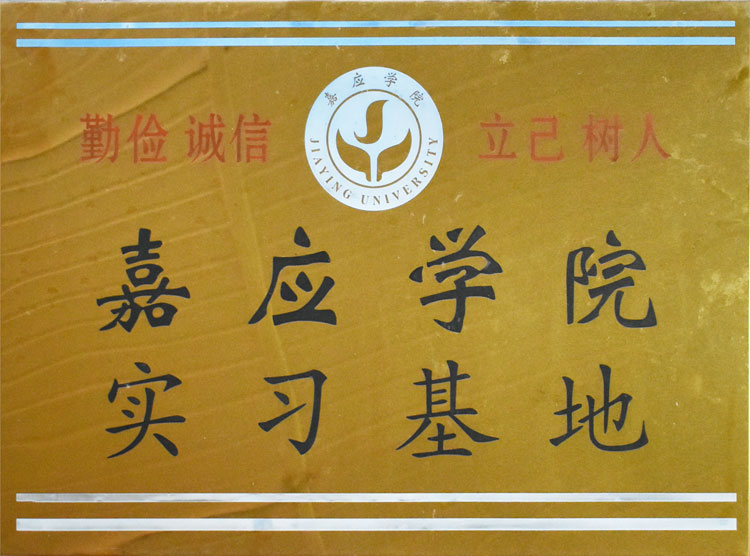 嘉应学院
JIAYING UNIVERSITY
勤俭 诚信 立己 树人
嘉应学院
实习基地